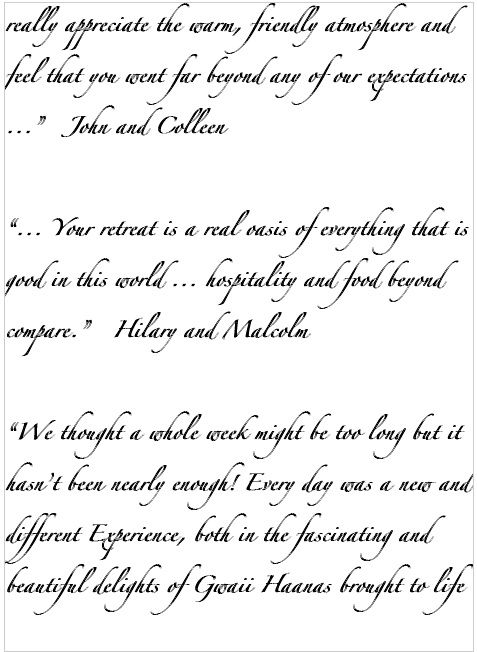 really appreciate the warm, friendly atmosphere and
feel that you went far beyond any of our expectations
...” John and Colleen
“... Your retreat is a real oasis of everything that is
good in this world ... hospitality and food beyond
compare.” Hilary and Malcolm
“We thought a whole week might be too long but it
hasn’t been nearly enough! Every day was a new and
different Experience, both in the fascinating and
beautiful delights of Gwaii Haanas brought to life